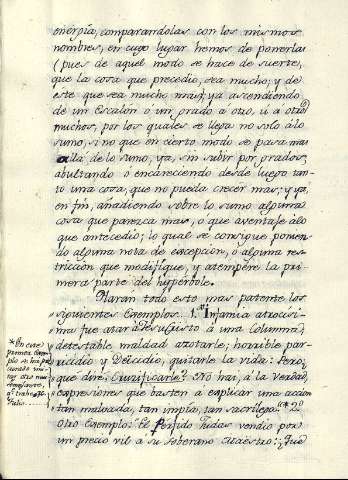 energía, comparandolas con los mismos
nombres, en cuyo lugar hemos de ponerlas
(pues de aquel modo se hace de suerte,
que la cosa que precedio, sea mucho; y de
este que sea mucho mas); ya ascendiendo
de un Escalòn o un grado a otro, ù a otros
muchos, por los quales se llega no solo àlo
sumo, si no que en cierto modo se pasa mas
allà de lo sumo, ya, sin subir por grados,
abultando o encareciendo desde luego tan-
to una cosa, que no pueda crecer mas; y ya,
en fin, añadiendo sobre lo sumo alguna
cosa que parezca mas, o que aventaje àlo
que antecedio; lo qual se consigue ponien-
do alguna nota de excepción, o alguna res-
tricción que modifique, y atempère la pri-
mera parte del hyperbole.
Haran todo esto mas patente los
siguientes Exemplos. 1.º Infamia atrocisi-
ma fue atar à Jesu Cristo à una Columna;
detestable maldad azotarle; horrible par-
ricidio y Deicidio, quitarle la vida: Pero,
que diré, Crucificarle? No hai, à la verdad,
expresiones que basten a explicar una accion
tan malvada, tan impia, tan sacrilega.* 2.º
Otro Exemplo: El Perfido Judas vendio por
un precio vil a su soberano Maestro: ¿Que
* En este
primer Exem-
plo se ha